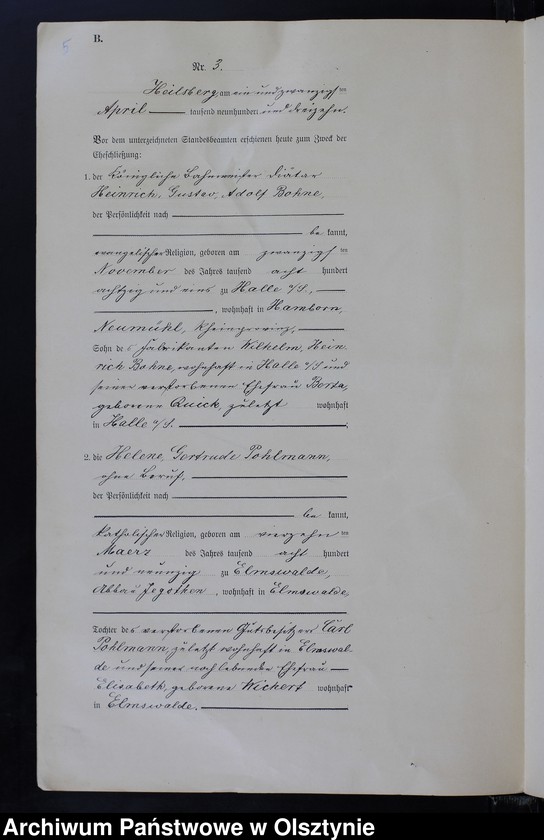 5
B.
Nr. 3.
Heilsberg, am ein und zwanzigsten
April tausend neunhundert und dreizehn.
Vor dem unterzeichneten Standesbeamten erschienen heute zum Zweck der
Eheschließung:
1. der Königliche Bahnmeister Diätar
Heinrich, Gustav, Adolf Bohne,
der Persönlichkeit nach
be kannt,
evangelischer Religion, geboren am zwanzigsten
November des Jahres tausend acht hundert
achtzig und eins zu Halle a/S.,
, wohnhaft in Hamborn,
Neumühl, Rheinprovinz,
Sohn des Fabrikanten Wilhelm, Hein-
rich Bohne, wohnhaft in Halle a/S und
seiner verstorbenen Ehefrau Berta,
geborene Quick, zuletzt wohnhaft
in Halle a/S.
2. die Helene, Gertrude Pohlmann,
ohne Beruf,
der Persönlichkeit nach
be kannt,
katholischer Religion, geboren am vierzehnten
Maerz des Jahres tausend acht hundert
und neunzig zu Elmswalde,
Abbau Jegothen, wohnhaft in Elmswalde,
Tochter des verstorbenen Gutsbesitzers Carl
Pohlmann, zuletzt wohnhaft in Elmswal-
de und seiner noch lebenden Ehefrau
Elisabeth, geborene Wichert wohnhaft
in Elmswalde.
Archiwum Państwowe w Olsztynie